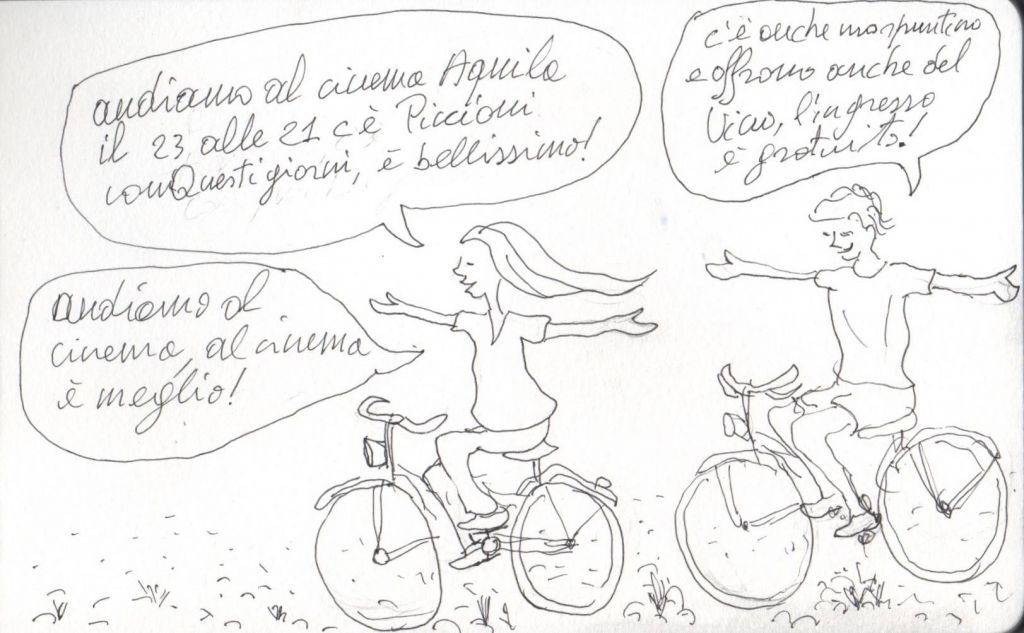 andiamo al cinema Aquila
il 23 alle 21 c'è Piccioni
con Questi giorni, è bellissimo!
c'è anche Mospuntino
e offrono anche del
vino, l'ingresso
è gratuito!
andiamo al
cinema, al cinema
è meglio!